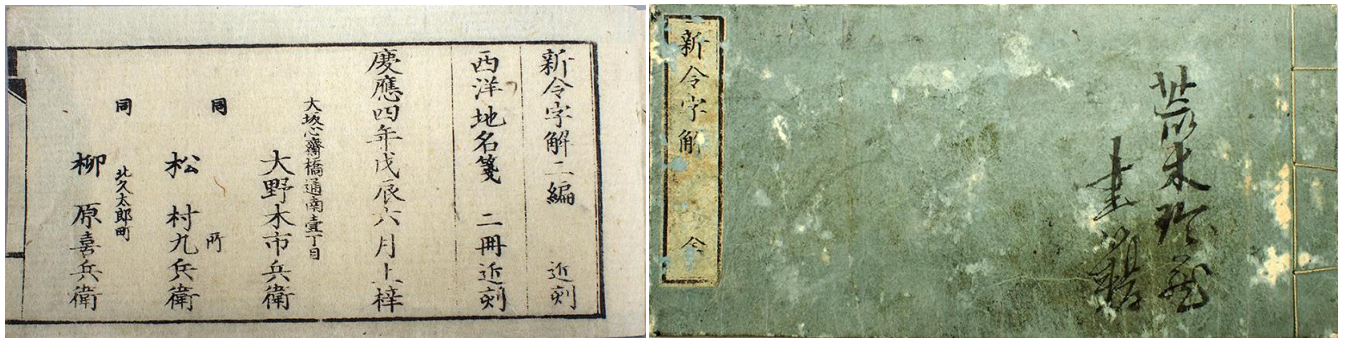 新令字解二編 近刻
西洋地名箋 二冊近刻
慶應四年戊辰六月上梓
大坂心齋橋通南壹丁目
大野木市兵衛
同 所
松村九兵衛
同 北久太郎町
柳原喜兵衛
荒木
書籍
新令字解 全